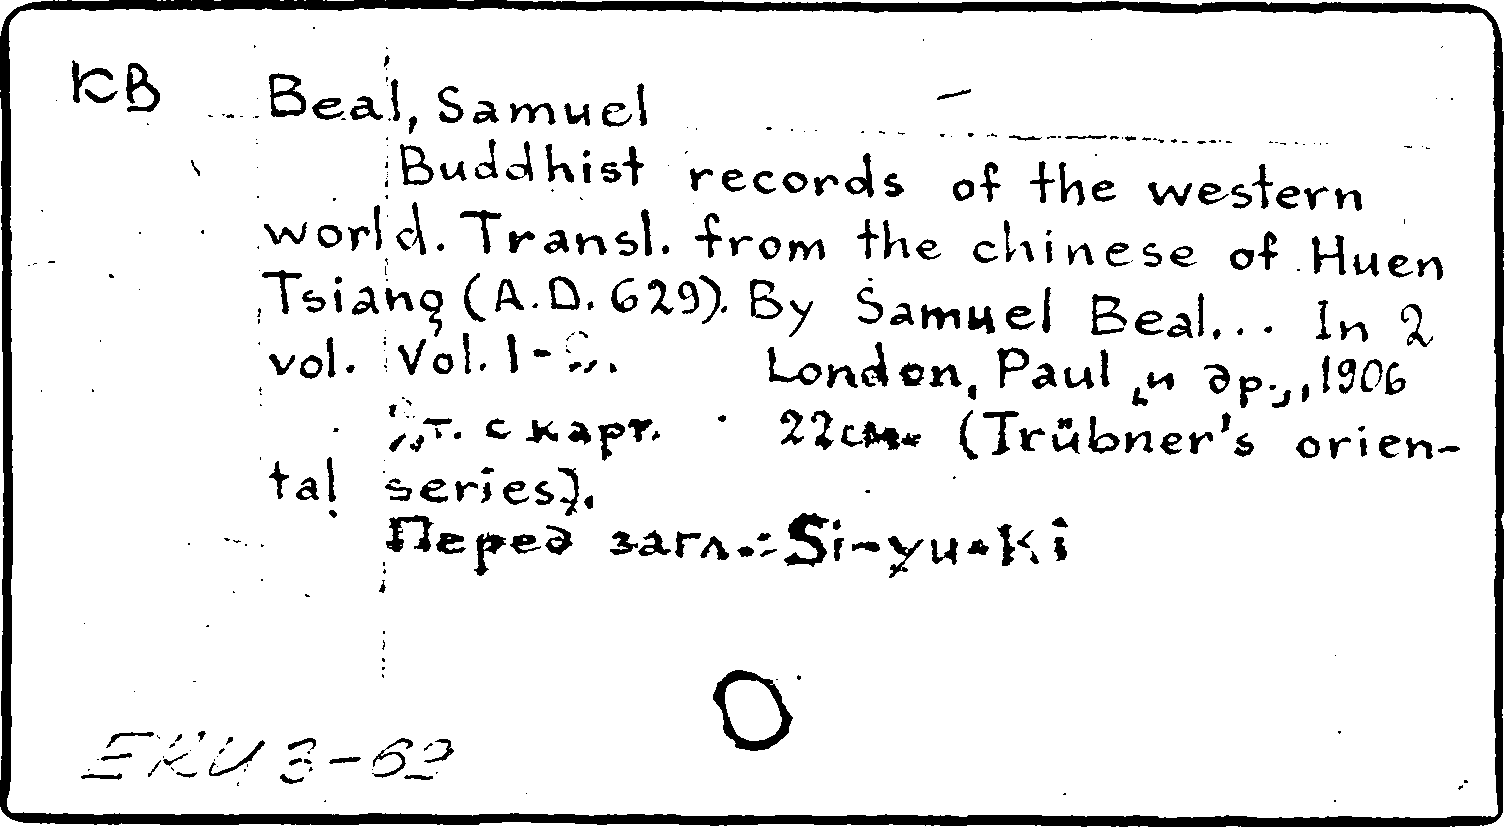 КВ Beal, Samuel
Buddhist records of the western
world. Transl. from the chinese of Huen
Tsiang (A.D. 629). By Samuel Beal... In 2
vol. Vol. 1-2. London, Paul [и др.], 1906
2 т. с карт. 22см. (Trübner's orien-
tal series).
Перед загл.: Si-yu-Ki
3-69